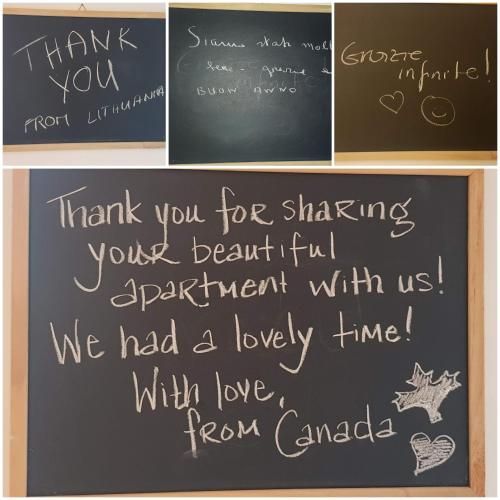 THANK
YOU
FROM LITHUANIA
Siamo stati molto
bene - grazie e
BUON ANNO
Grazie
infinite!
Thank you for sharing
your beautiful
apartment with us!
We had a lovely time!
With love,
from Canada